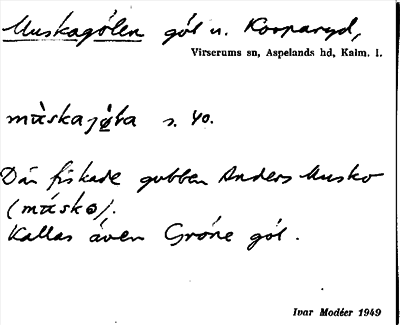 Muskagölen göl u. Korparyd,
Virserums sn, Aspelands hd, Kalm. l.
s. 40.
Där fiskade gubben Anders Musko
(mùsko).
Kallas även Gröne göl.
Ivar Modéer 1949